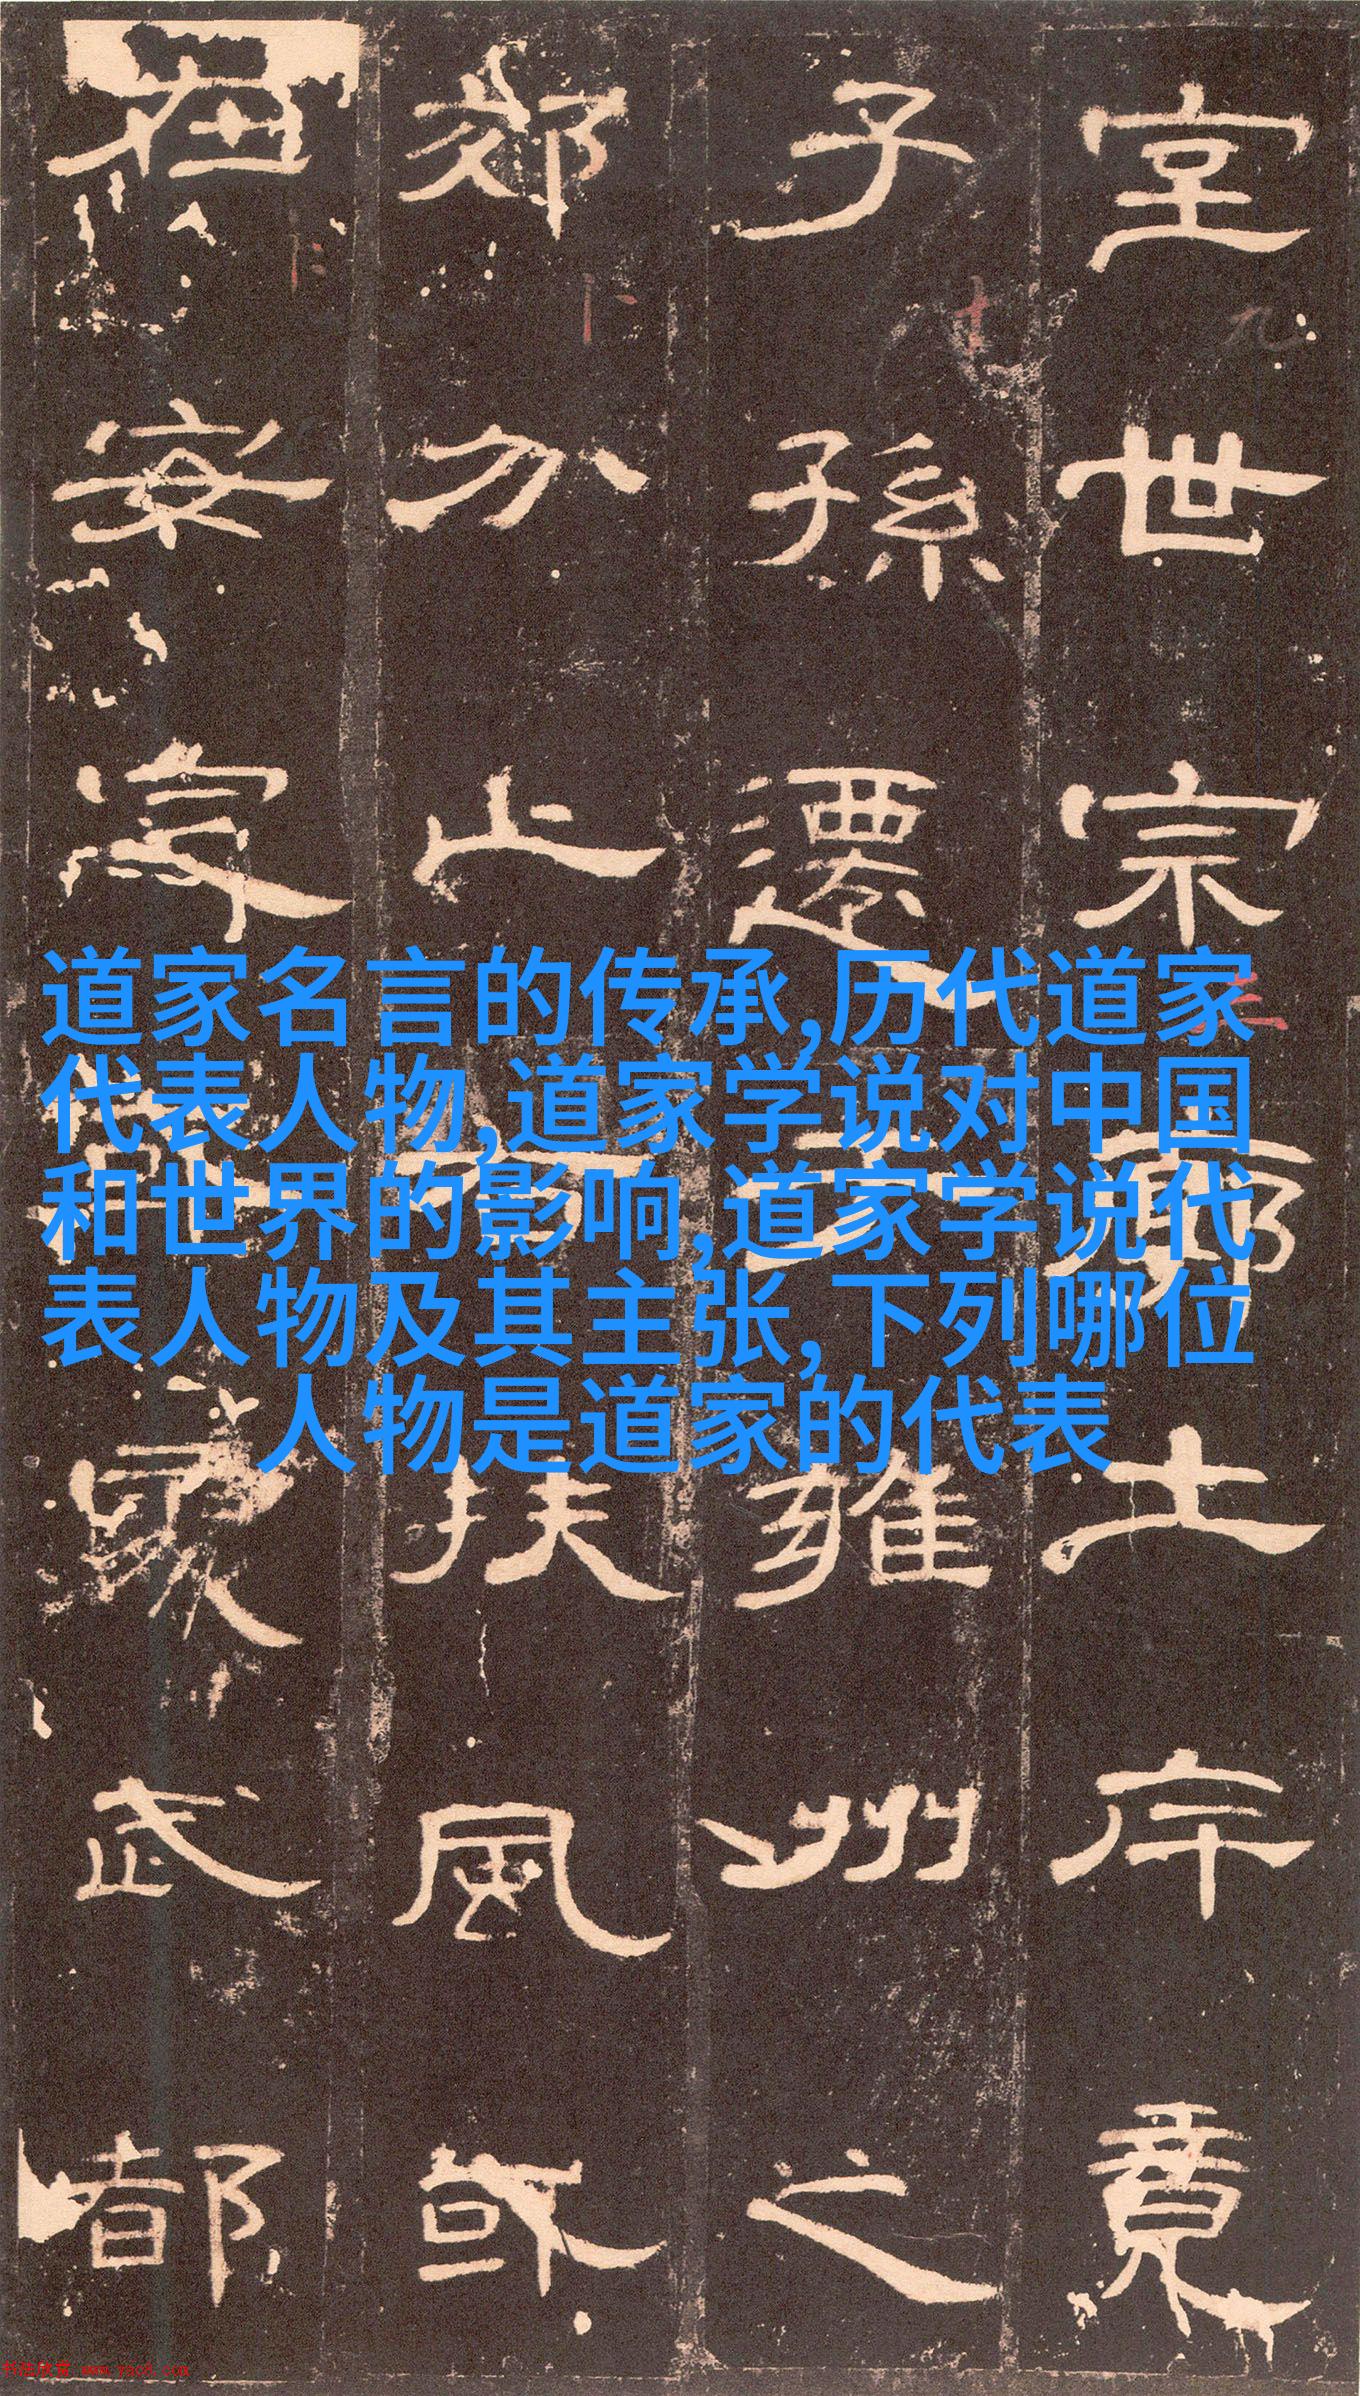 室世宗廓土斥竟
子孫遷于雍州之
郊分止右扶風或
在安定或處武都
道家名言的传承,历代道家
代表人物,道家学说对中国
和世界的影响,道家学说代
表人物及其主张,下列哪位
人物是道家的代表
书法欣赏 www.yac8.com